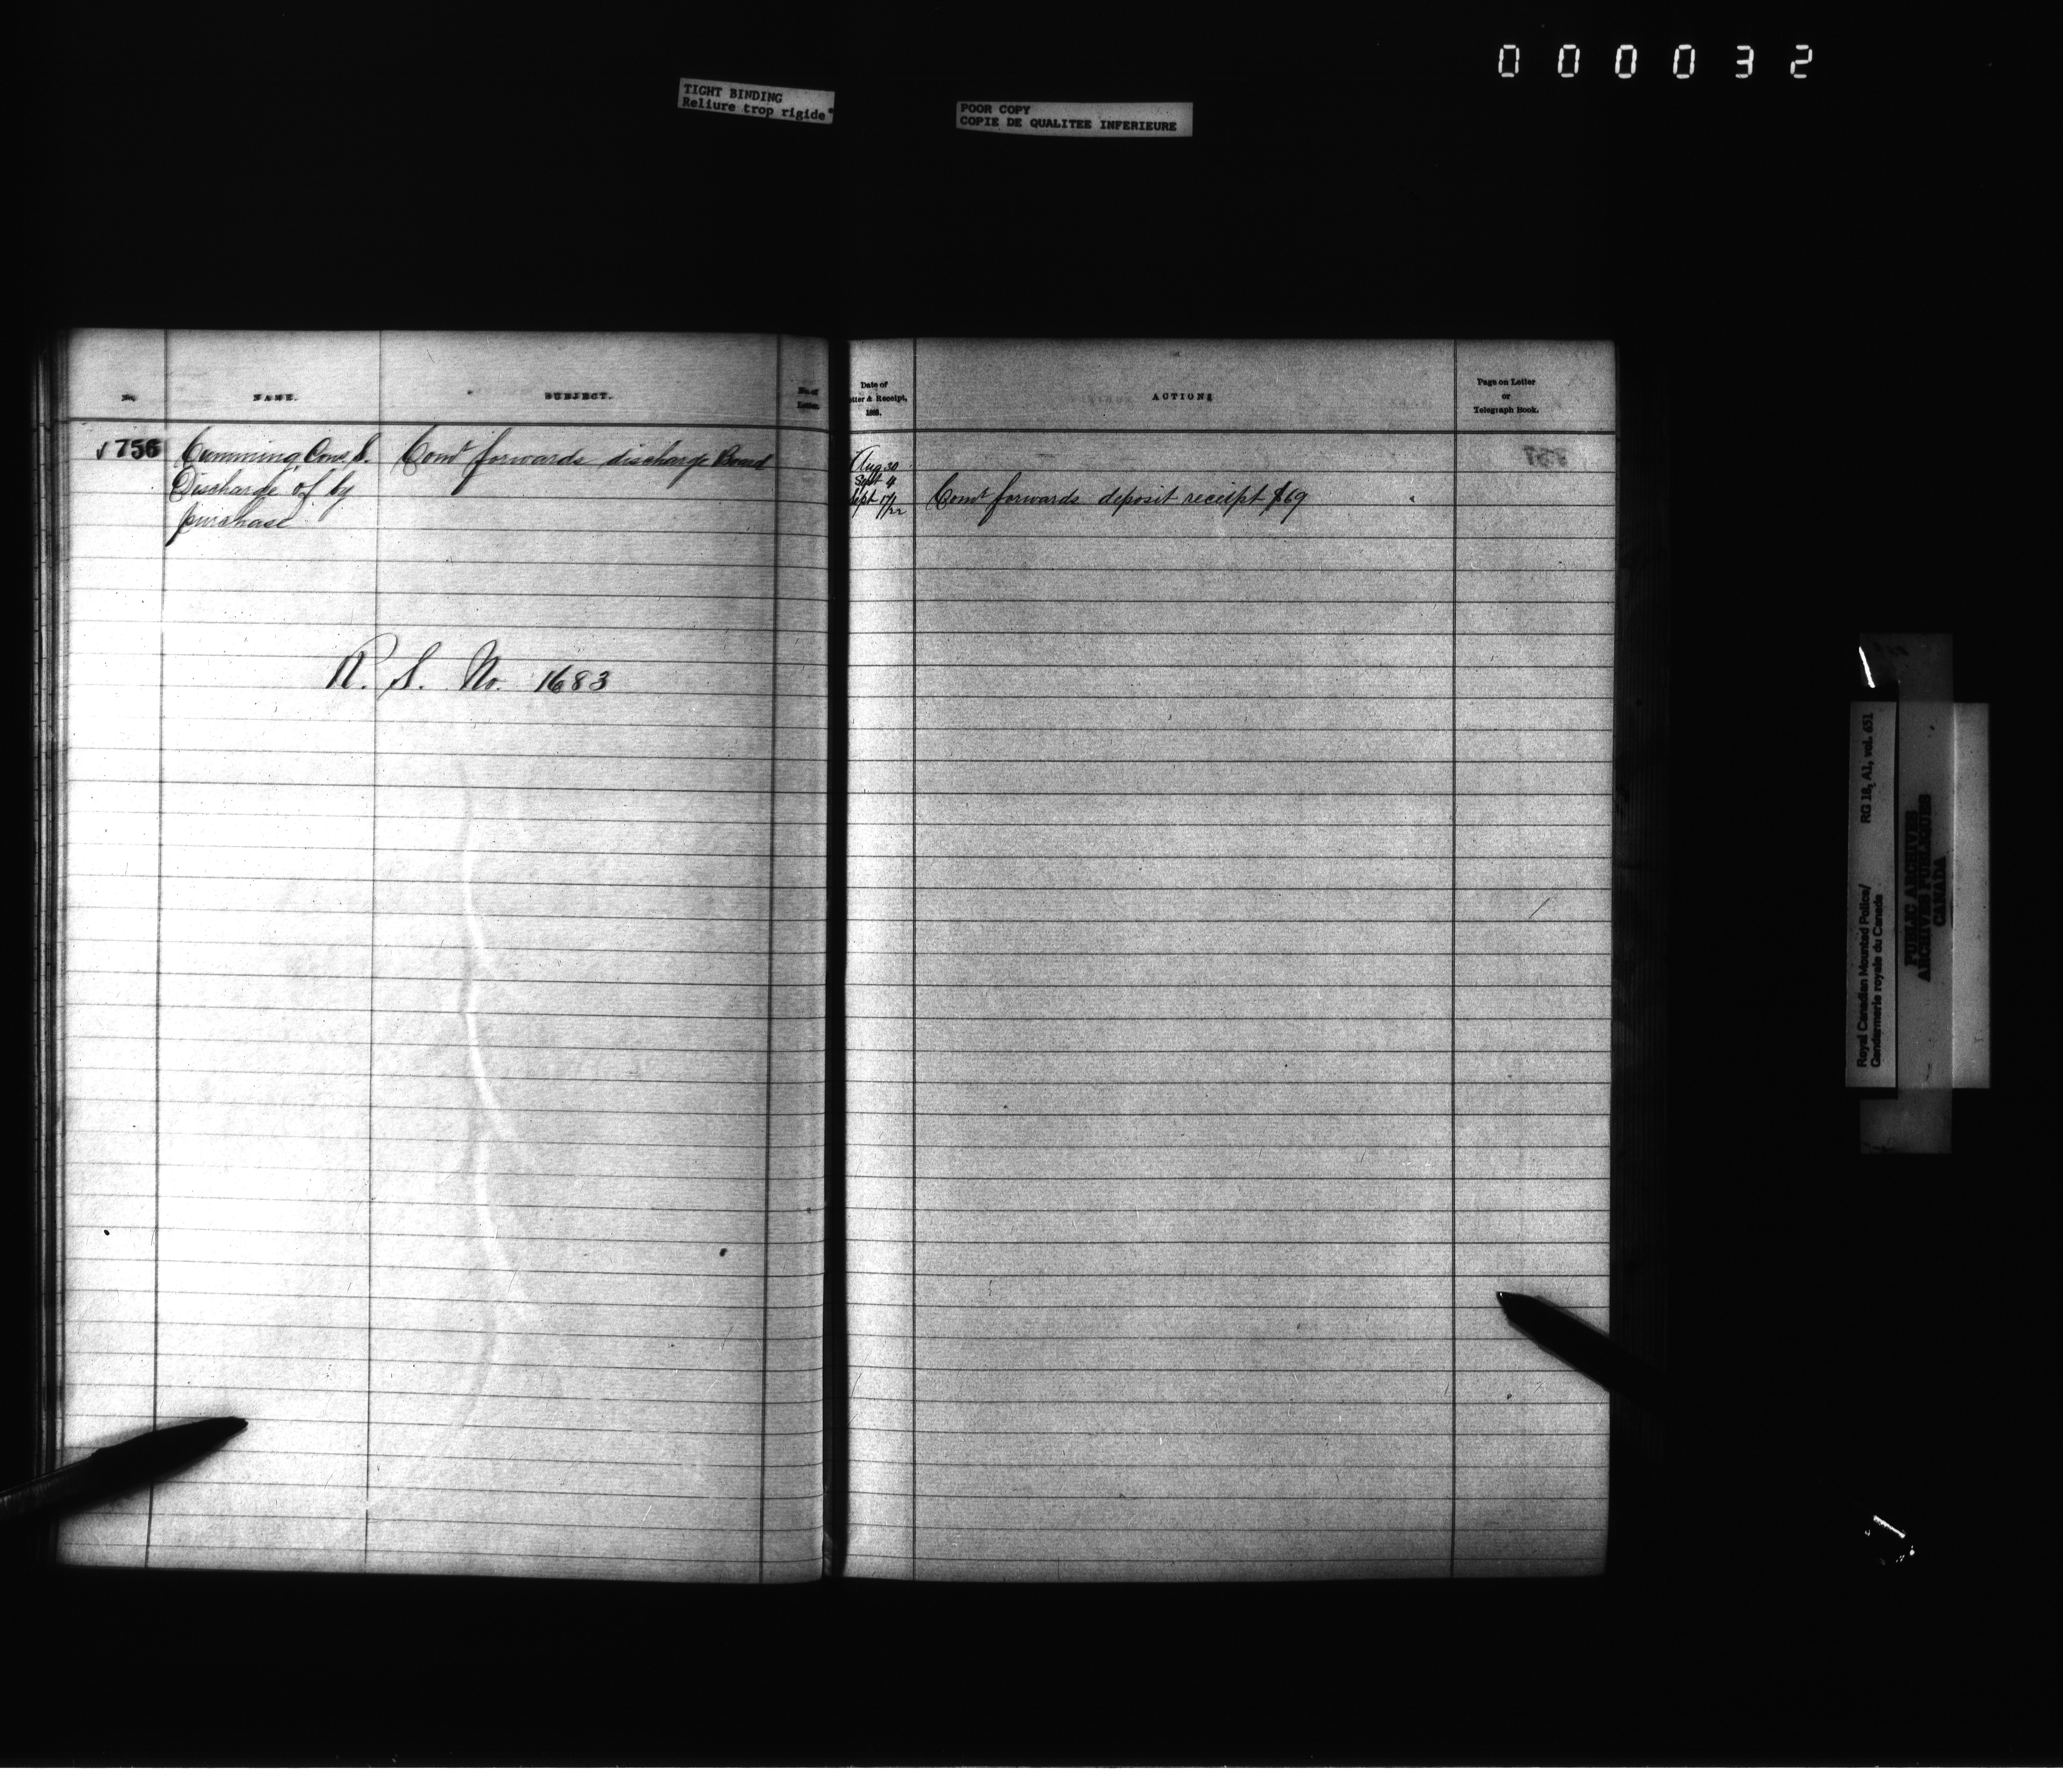 000032
TIGHT BINDING
Reliure trop rigide
POOR COPY
COPIE DE QUALITEE INFERIEURE
No.
NAME.
SUBJECT.
No. of
Letter.
√ 756
Cumming, Cons. S.
Discharge of by
purchase
Comr forwards discharge Board
R. S. No. 1683
Date of
tter & Receipt,
188
ACTIONS
Page on Letter
or
Telegraph Book.
Aug 30
Sept 4
Sept 17/22
Comr forwards deposit receipt $69
757
Royal Canadian Mounted Police/
Gendarmerie royale du Canada
RG 18, A1, vol. 651
PUBLIC ARCHIVES
ARCHIVES PUBLIQUES
CANADA